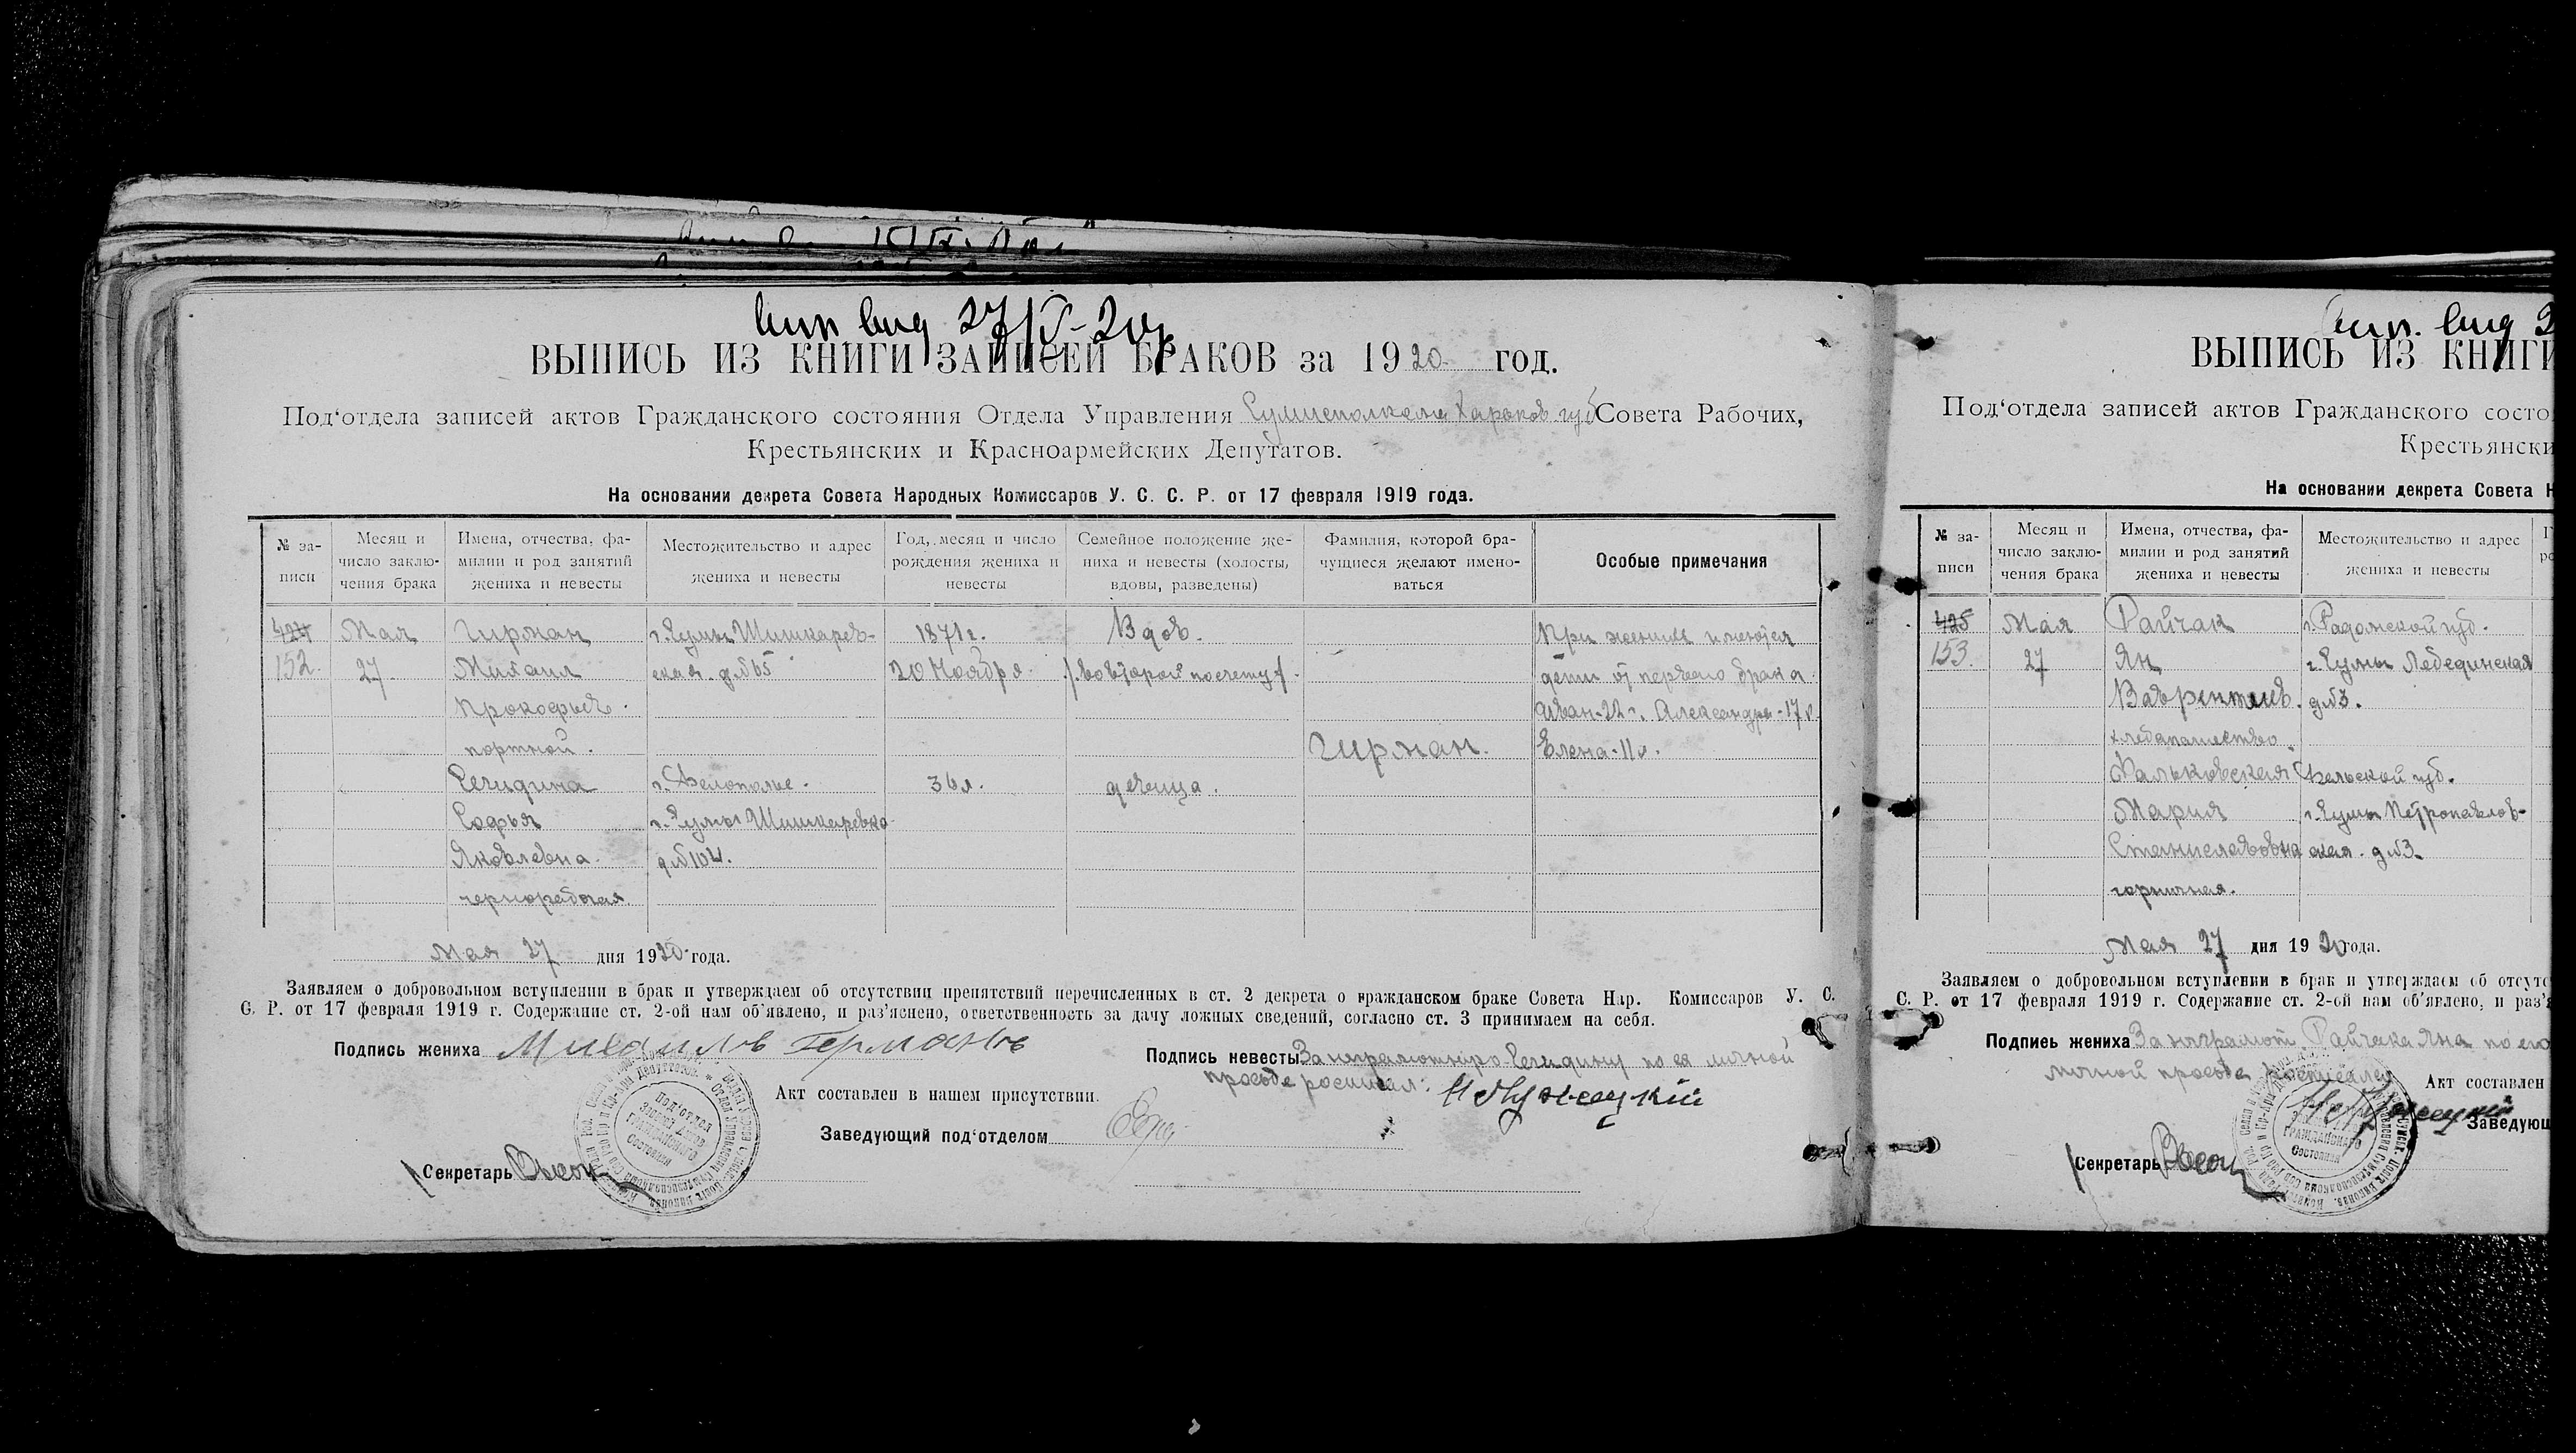 вид 27/V-20г
ВЫПИСЬ ИЗ КНИГИ ЗАПИСЕЙ БРАКОВ за 1920 год.
Под‘отдела записей актов Гражданского состояния Отдела Управления Сумисполкома Харьков. губ Совета Рабочих,
Крестьянских и Красноармейских Депутатов.
На основании декрета Совета Народных Комиссаров У. С. С. Р. от 17 февраля 1919 года.
№ за-
писи
Месяц и
число заклю-
чения брака
Имена, отчества, фа-
милии и род занятий
жениха и невесты
Местожительство и адрес
жениха и невесты
Год, месяц и число
рождения жениха и
невесты
Семейное положение же-
ниха и невесты (холосты,
вдовы, разведены)
Фамилия, которой бра-
чущиеся желают имено-
ваться
Особые примечания
424 Мая Гирман г. Сумы Шишкарев- 1871 г. Вдов. При женихе имеются
152 27 Михаил ская д. №65 20 Ноября /вовторой по счету/. дети от первого брака
Прокофьев. Иван-22 г. Александра-17 л.
портной. Гирман. Елена-11 л.
Речидина г. Белополье. 36 л. девица.
Софья г. Сумы Шишкаревка
Яковлевна д. №104.
чернорабочая
Мая 27 дня 1920 года.
Заявляем о добровольном вступлении в брак и утверждаем об отсутствии препятствий перечисленных в ст. 2 декрета о гражданском браке Совета Нар. Комиссаров У. С.
С. Р. от 17 февраля 1919 г. Содержание ст. 2-ой нам об‘явлено, и раз‘яснено, ответственность за дачу ложных сведений, согласно ст. 3 принимаем на себя.
Подпись жениха Михаилов Германов
Подпись невесты За неграмотную Речидину по ея личной
просьбе росписал:
Акт составлен в нашем присутствии.
Заведующий под‘отделом
Секретарь
Под‘отдел
Записей Актов
Гражданского
Состояния
вид 2
ВЫПИСЬ ИЗ КНИГИ
Под‘отдела записей актов Гражданского состо
Крестьянски
На основании декрета Совета Н
№ за-
писи
Месяц и
число заклю-
чения брака
Имена, отчества, фа-
милии и род занятий
жениха и невесты
Местожительство и адрес
жениха и невесты
425 Мая Райчак г. Радомской губ.
153. 27 Ян г. Сумы Лебединская
Ваврентиев. д №3.
хлебопашество.
Мария г. Сумы Петропавлов-
Станиславовна ская. д №3.
горничная.
Мая 27 дня 1920 года.
Заявляем о добровольном вступлении в брак и утверждаем об отсутс
С. Р. от 17 февраля 1919 г. Содержание ст. 2-ой нам об‘явлено, и раз‘я
Подпись жениха За неграмот. Райчака Яна по его
личной просьбе росписался
Акт составлен
Заведующ
Секретарь
Гражданского
Состояния